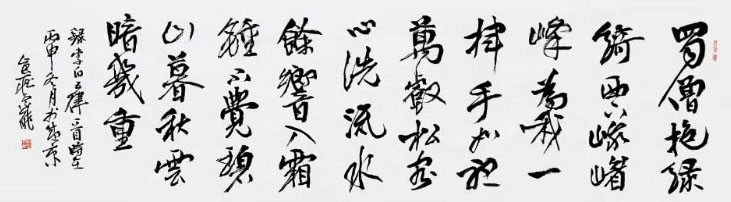 蜀僧抱綠
綺西下峨嵋
峰為我一
揮手如聽
萬壑松客
心洗流水
餘響入霜
鍾不覺碧
山暮秋雲
暗幾重
錄李白五律一首時在
丙申冬月於